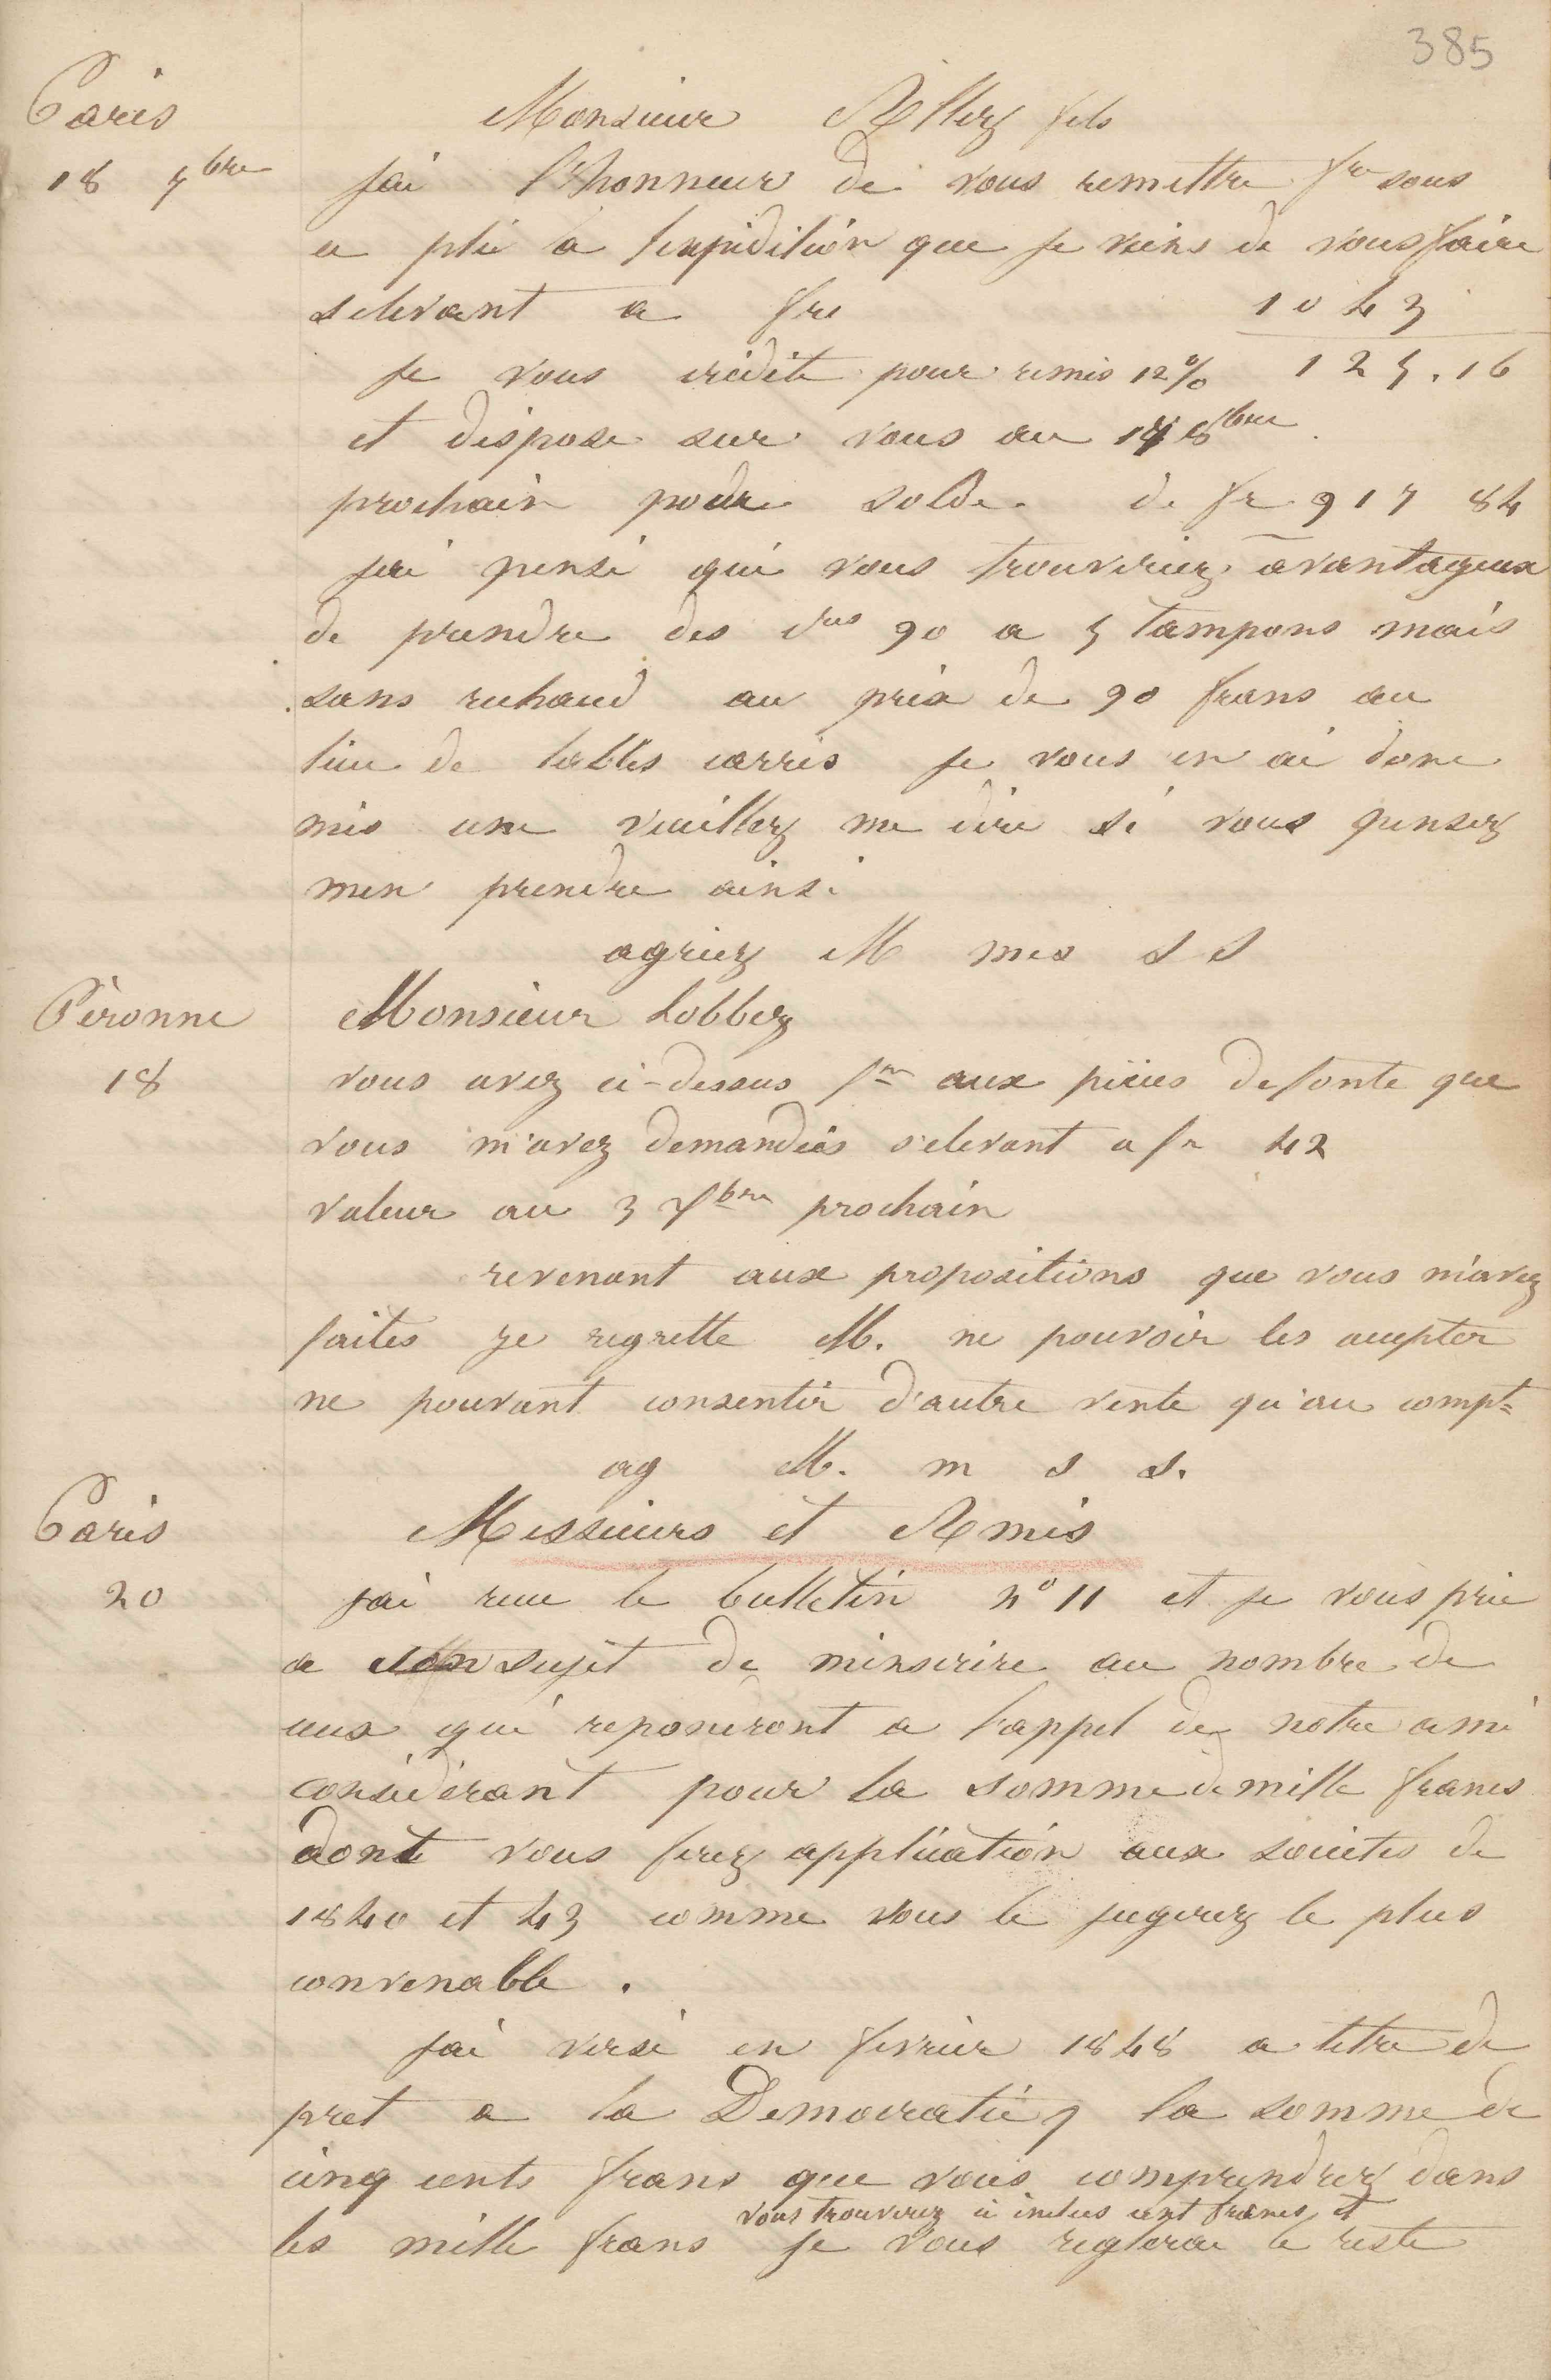 385
Paris
18 7bre
Monsieur Allez fils
jai l'honneur de vous remettre fre sous
ce pli a lexpedition que je viens de vous faire
selevant a frs 1043
je vous crédite pour remis 12% 125.16
et dispose sur vous au 14 8bre
prochain pour solde de fr 917 84
jai pensé que vous trouveriez avantageux
de prendre des Nos 90 a 5 tampons mais
sans rechaud au prix de 90 frans au
lieu de celles carres je vous en ai donc
mis une veuillez me dire si vous pensez
men prendre ainsi
agreez M mes s s
Péronne
18
Monsieur Lobbez
vous avez ci-dessus fre aux pièces de fonte que
vous m'avez demandées s'elevant a fr 42
valeur au 3 Xbre prochain
revenant aux propositions que vous m'avez
faites je regrette M. ne pouvoir les accepter
ne pouvant consentir d'autre vente qu'au compt
ag M. m s s.
Paris
20
Messieurs et Amis
jai recu le bulletin no 11 et je vous prie
a son sujet de minscrire au nombre de
ceux qui reponderont a l'appel de notre ami
considérant pour la somme de mille francs
dont vous ferez application aux societes de
1840 et 43 comme vous le jugerez le plus
convenable.
jai versé en fevrier 1848 a titre de
pret a la Democratie p la somme de
cinq cents frans que vous comprendrez dans
vous trouverez ci inclus cent francs et
les mille frans je vous reglerai le reste